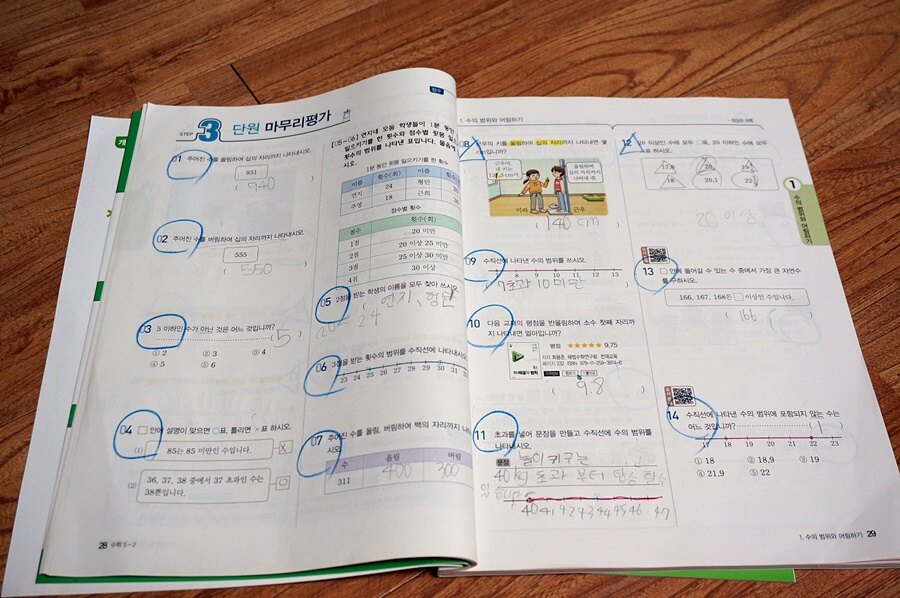 STEP 3 단원 마무리평가
점수
01 주어진 수를 올림하여 십의 자리까지 나타내시오.
931
( 940
02 주어진 수를 버림하여 십의 자리까지 나타내시오.
555
( 550
03 5 이하인 수가 아닌 것은 어느 것입니까?
( 5 )
① 2 ② 3 ③ 4
④ 5 ⑤ 6
04 □ 안에 설명이 맞으면 ○표, 틀리면 ×표 하시오.
(1) 85는 85 미만인 수입니다. X
(2) 36, 37, 38 중에서 37 초과인 수는
38뿐입니다. ○
28 수학 5-2
[05~06] 연지네 모둠 학생들이 1분 동안
윗몸 일으키기를 한 횟수와 점수별
횟수의 범위를 나타낸 표입니다.
1분 동안 윗몸 일으키기를 한 횟수
이름 횟수(회) 이름 횟수(회)
연지 24 형민
주영 18 근희
점수별 횟수
점수 횟수(회)
1점 20 미만
2점 20 이상 25 미만
3점 25 이상 30 미만
4점 30 이상
05 2점을 받는 학생의 이름을 모두 찾아 쓰시오.
연지, 형민
24
06 3점을 받는 횟수의 범위를 수직선에 나타내시오.
23 24 25 26 27 28 29 30 31
07 주어진 수를 올림, 버림하여 백의 자리까지
수 올림 버림
311 400 300
1. 수의 범위와 어림하기
08 근우의 키를 올림하여 십의 자리까지 나타내면 몇
cm입니까?
근우야,
네 키는
올림하여
십의 자리까지
나타내 줘.
미라 근우
( 140 cm )
09 수직선에 나타낸 수의 범위를 쓰시오.
7 8 9 10 11 12 13
7초과 10미만
10 다음 교재의 평점을 반올림하여 소수 첫째 자리까
지 나타내면 얼마입니까?
평점 ★★★★★ 9.75
( 9.8
11 초과를 넣어 문장을 만들고 수직선에 수의 범위를
나타내시오.
문장 놀이 키구는
40 kg 초과 부터 탑승 할수
있습니다
40 41 42 43 44 45 46 47
12 20 이상인 수에 모두 ○표, 20 이하인 수에 모두
△표 하시오.
18 20.1
20 이상
13 □ 안에 들어갈 수 있는 수 중에서 가장 큰 자연수
를 구하시오.
166, 167, 168은 □ 이상인 수입니다.
( 166 )
14 수직선에 나타낸 수의 범위에 포함되지 않는 수는
어느 것입니까? ( 1 )
17 18 19 20 21 22 23
① 18 ② 18.9 ③ 19
④ 21.9 ⑤ 22
1
수의 범위와 어림하기
1. 수의 범위와 어림하기 29